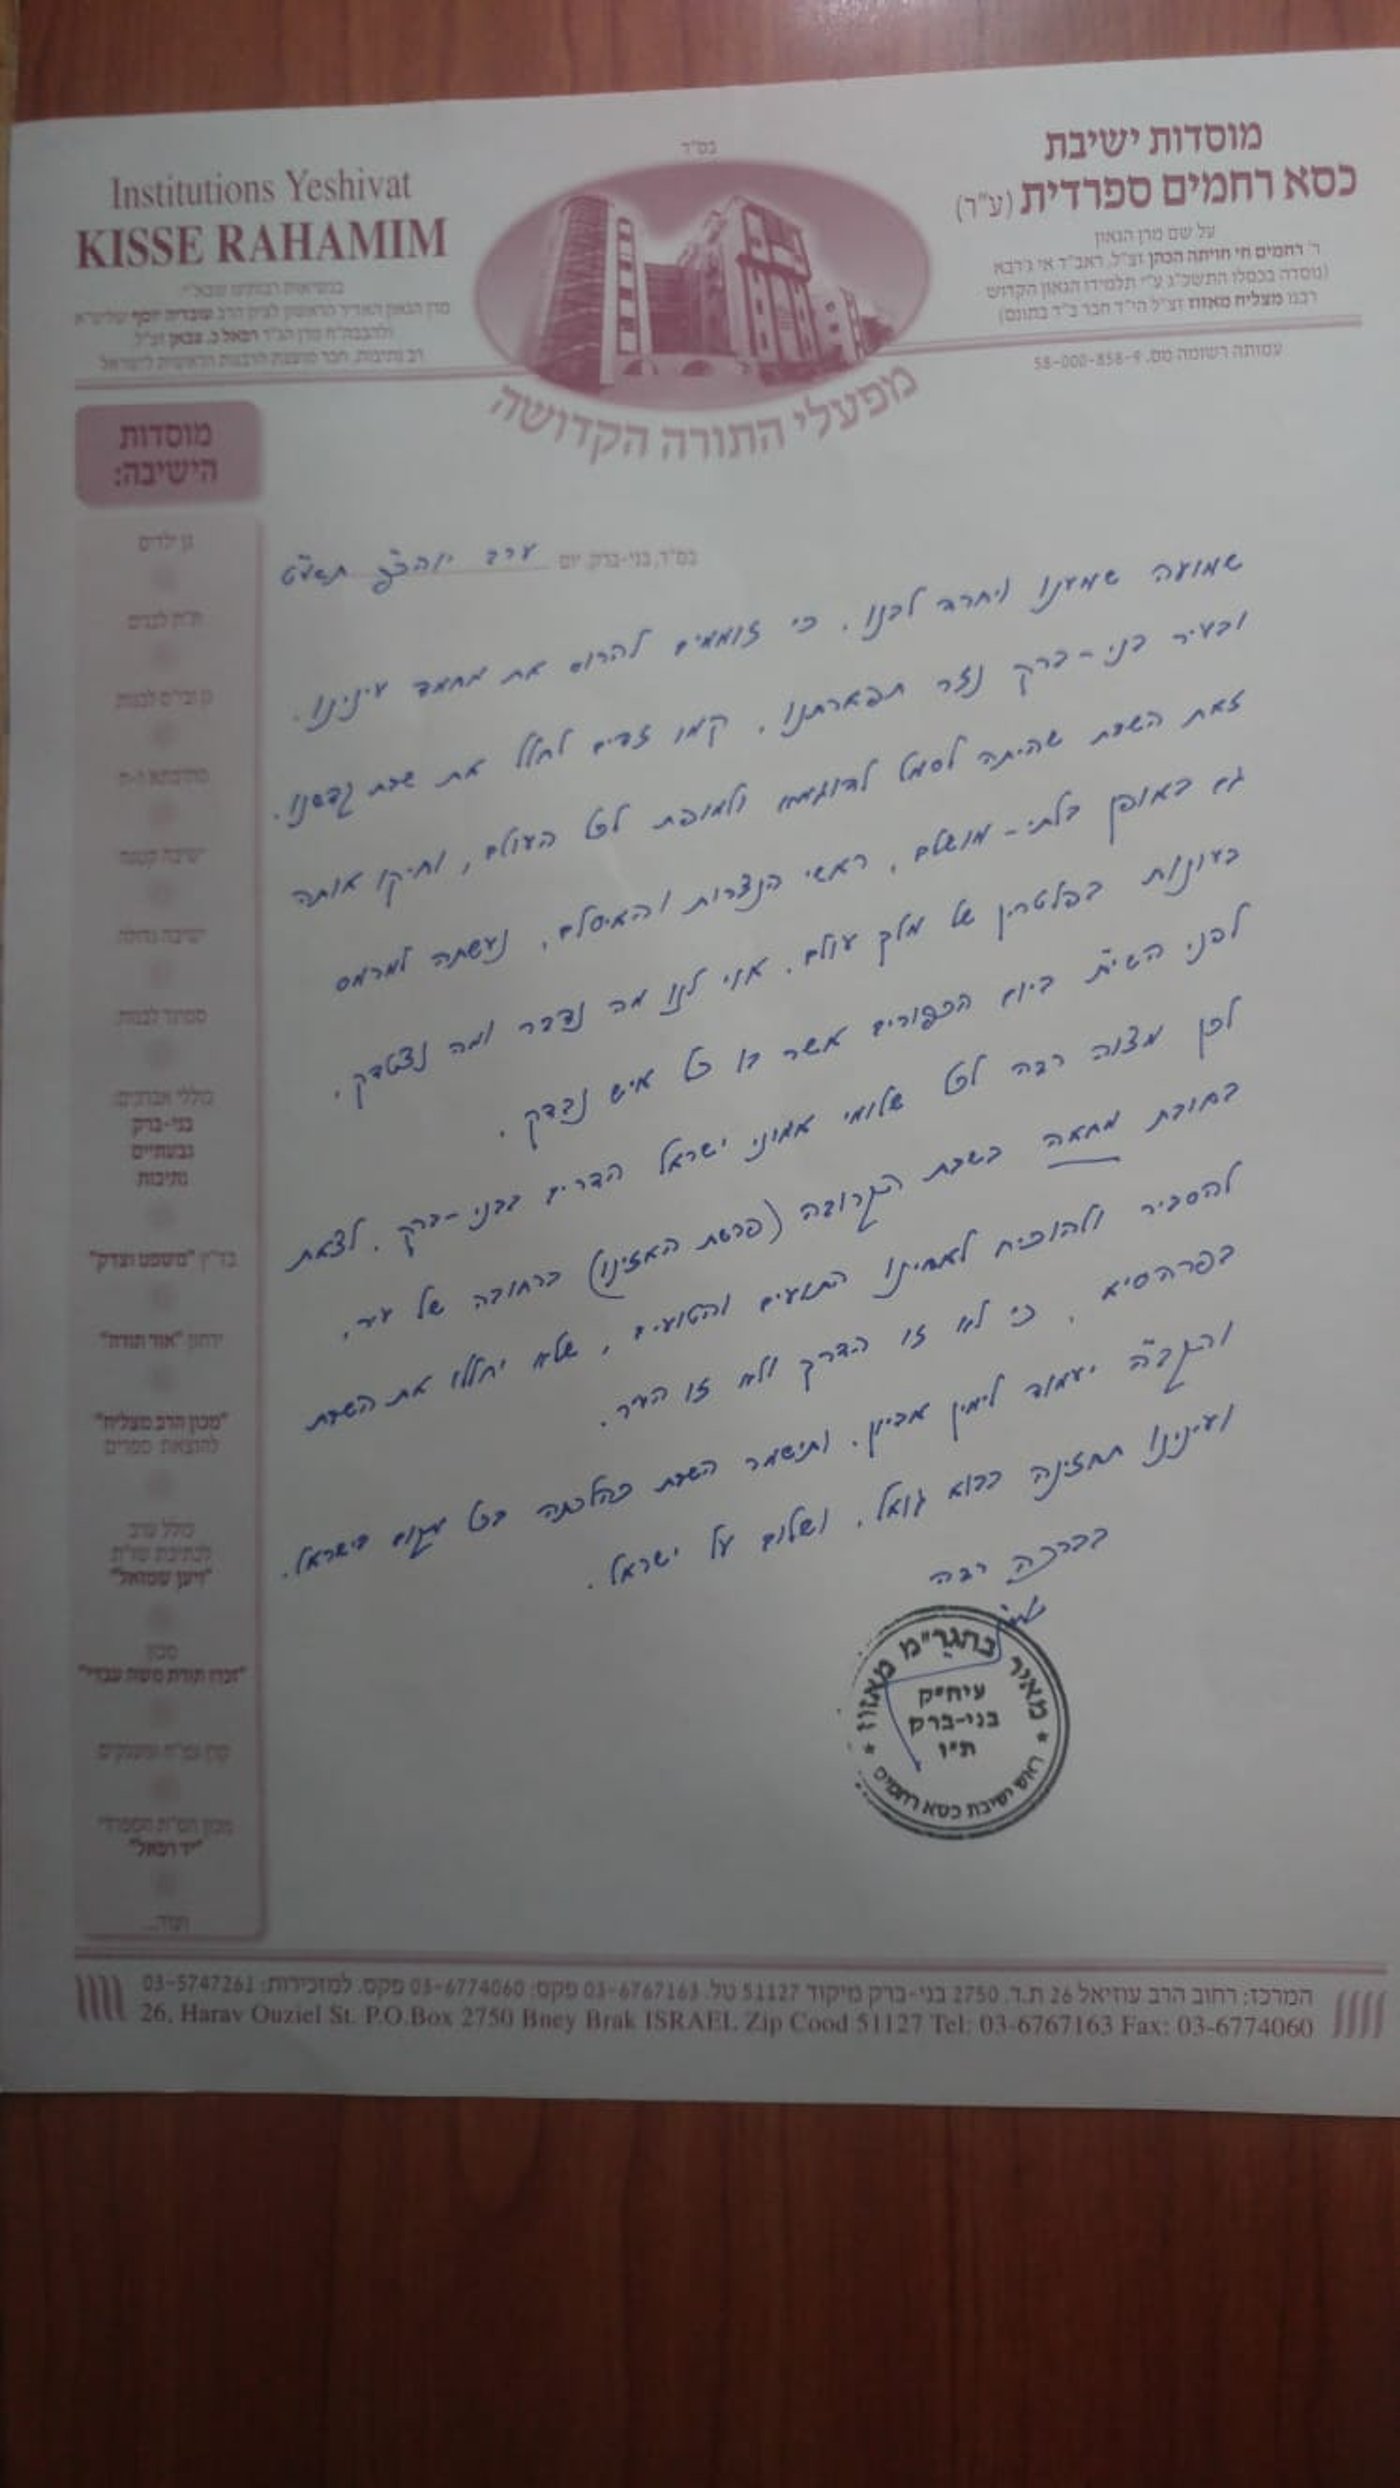 בס"ד
מוסדות ישיבת
כסא רחמים ספרדית (ע"ר)
על שם מרן הגאון
ר' רחמים חי חויתה הכהן זצ"ל, ראב"ד אי ג'רבא
(נוסדה בכסלו התשכ"ג ע"י תלמידו הגאון הקדוש
רבנו מצליח מאזוז זצ"ל הי"ד חבר ב"ד בתונס)
עמותה רשומה מס. 58-000-858-9
Institutions Yeshivat
KISSE RAHAMIM
בנשיאות רבותינו שבא"י
מרן הגאון האדיר הראשון לציון הרב עובדיה יוסף שליט"א
(ולהבבה"ח מרן הגר"ר רפאל כ. צבאן זצ"ל
רב נתיבות, חבר מועצת הרבנות הראשית לישראל
מפעלי התורה הקדושה
מוסדות
הישיבה:
גן ילדים
ת"ת לבנים
גן ובי"ס לבנות
מתיבתא ז-ח
ישיבה קטנה
ישיבה גדולה
סמינר לבנות
כוללי אברכים:
בני-ברק
גבעתיים
נתיבות
בד"ץ "משפט וצדק"
ירחון "אור תורה"
"מכון הרב מצליח"
להוצאת ספרים
כולל ערב
לכתיבת שו"ת
"ויען שמואל"
מכון
"זכרו תורת משה עבדי"
קרן גמ"ח ומענקים
מכון הש"ת הספרדי
"יד רפאל"
ועוד...
בס"ד, בני-ברק, יום ערב יוהכ"פ תשע"ט
שמועה שמענו ויחרד לבנו, כי זוממים להרוס את מחמד עינינו.
ובעיר בני-ברק נזר תפארתנו, קמו זדים לחלל את שבת קדשנו.
זאת השבת שהיתה לסמל לדוגמא ולמופת לכל העולם, וחיקו אותה
גם באופן בלתי-מושלם, ראשי הנצרות והאיסלם, נעשתה למרמס
בעונות בפלטרין של מלך עולם. אוי לנו מה נדבר ומה נצטדק,
לפני השי"ת ביום הכפורים אשר בו כל איש נבדק.
לכן מצוה רבה לכל שלומי אמוני ישראל הדרים בבני-ברק, לצאת
בחובת מחאה בשבת הקרובה (פרשת האזינו) ברחובה של עיר,
להסביר ולהוכיח לאחינו התועים והטועים, שלא יחללו את השבת
בפרהסיא, כי לא זו הדרך ולא זו העיר.
והקב"ה יעמוד לימין אביון, ותישמר השבת כהלכתה בכל מקום בישראל.
ועינינו תחזינה בבוא גואל, ושלום על ישראל.
בברכה רבה
מאיר בהגר"מ מאזוז
עיה"ק
בני-ברק
ת"ו
ראש ישיבת כסא רחמים
המרכז: רחוב הרב עוזיאל 26 ת.ד. 2750 בני-ברק מיקוד 51127 טל. 03-6767163 פקס: 03-6774060 פקס. למזכירות: 03-5747261
26, Harav Ouziel St. P.O.Box 2750 Bney Brak ISRAEL Zip Cood 51127 Tel: 03-6767163 Fax: 03-6774060